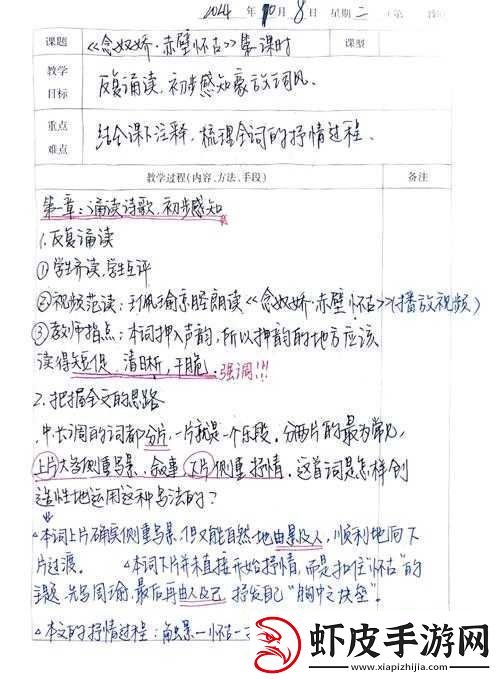 2024 年 10 月 8 日 星期二 (第
课题 《念奴娇·赤壁怀古》第 课时 课型
教学目标 反复诵读,初步感知豪放词风。
重点难点 结合课下注释,梳理全词的抒情过程。
教学过程(内容、方法、手段) 备注
第一章:诵读诗歌,初步感知
1.反复诵读
①学生齐读,学生点评
②视频范读: 朗读《念奴娇·赤壁怀古》(播放视频)
③教师指点:本词押入声韵,所以押韵的地方应该
读得短促、清晰,干脆。强调!!!
2.把握全文的思路
中长调的词都分片,一片就是一个乐段,分两片的最为常见,
上片大多侧重写景、叙事,下片侧重抒情,这首词是怎样创
造性地运用这种写法的?
本词上片确实侧重写景,但又能自然地由景及人,顺利地向下
片过渡。 本词下片并未直接开始抒情,而是扣住"怀古"的
题,先写周瑜,最后再由人及己,抒发自己"胸中之块垒"。
本文的抒情过程: 景—怀古—
虾皮手游网
www.xiapizhijia.com